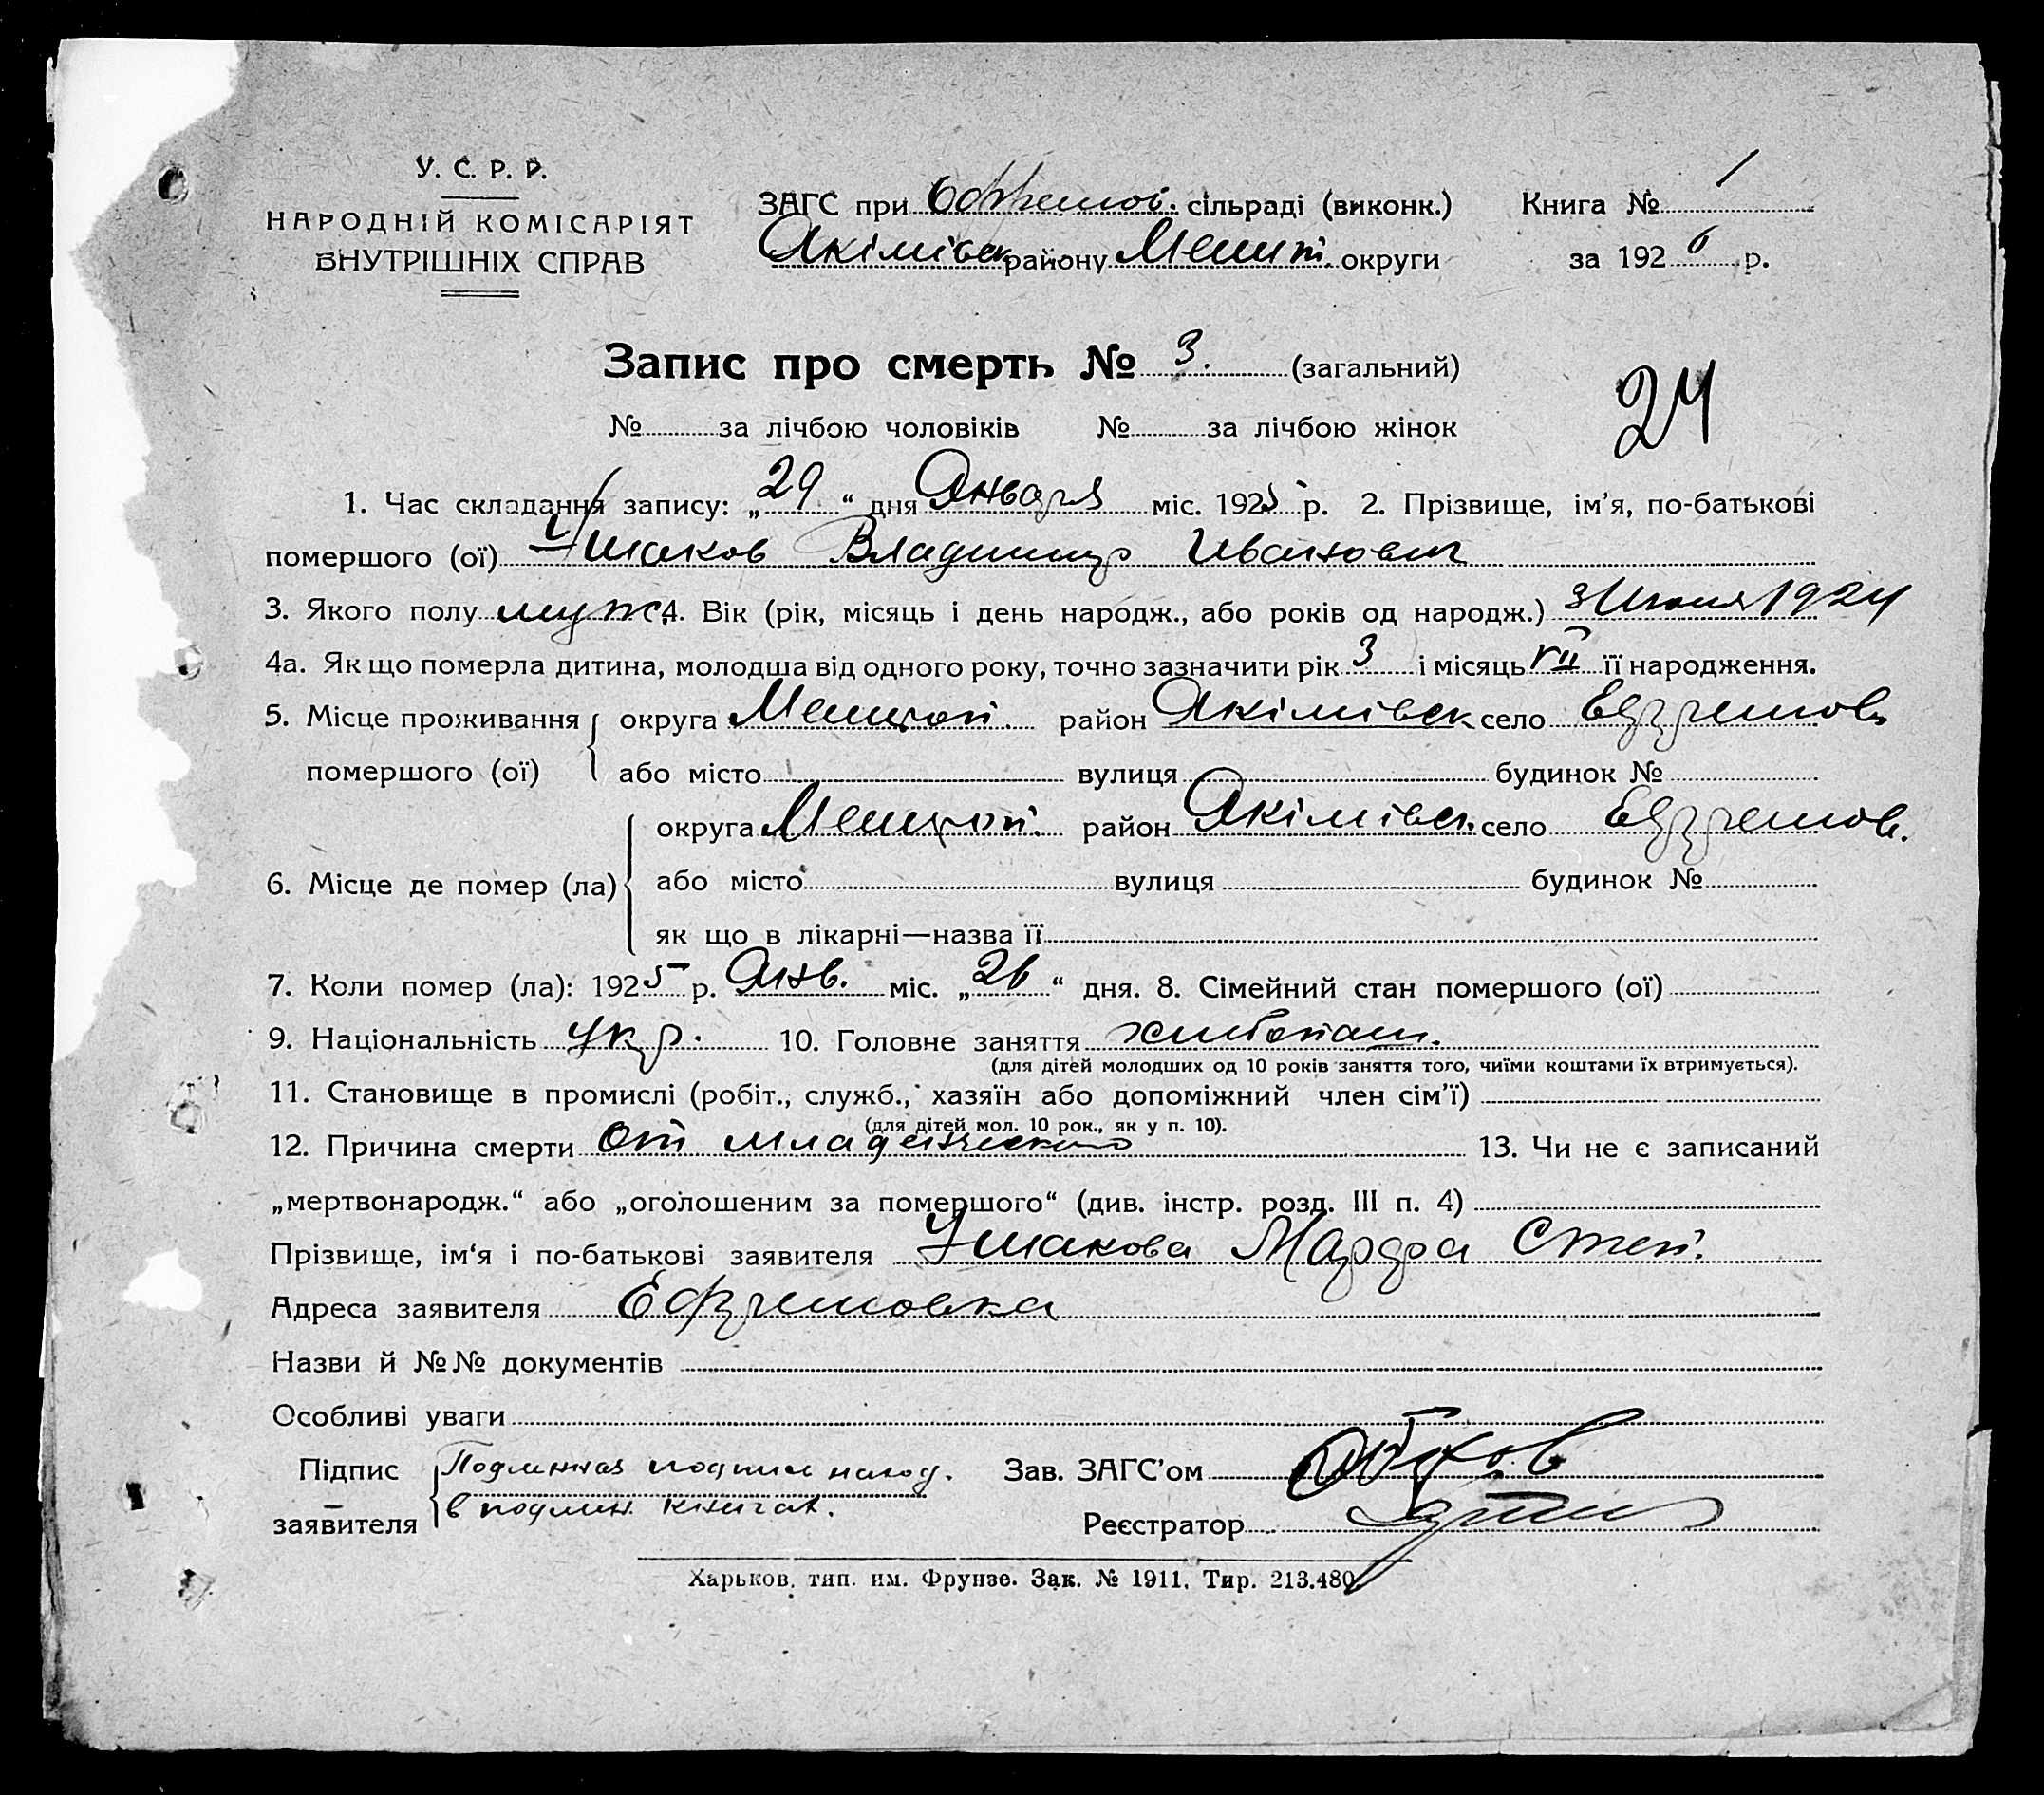 У. С. Р. Р.
НАРОДНІЙ КОМІСАРІЯТ
ВНУТРІШНІХ СПРАВ
ЗАГС при Єфремов. сільраді (виконк.) Книга № 1
Якімівск району Мелит. округи за 1926 р.
Запис про смерть № 3. (загальний)
24
№ за лічбою чоловіків № за лічбою жінок
1. Час складання запису: „29“ дня Января міс. 1925 р. 2. Прізвище, ім’я, по-батькові
помершого (ої) Ушаков Владимир Иванович
3. Якого полу муж 4. Вік (рік, місяць і день народж., або років од народж.) 3 Июля 1924
4а. Як що померла дитина, молодша від одного року, точно зазначити рік 3 і місяць VII її народження.
5. Місце проживання помершого (ої) округа Мелитоп. район Якімівск село Ефремов
або місто вулиця будинок №
6. Місце де помер (ла) округа Мелитоп. район Якімівск. село Ефремов.
або місто вулиця будинок №
як що в лікарні—назва її
7. Коли помер (ла): 1925 р. Янв. міс. „26“ дня. 8. Сімейний стан помершого (ої)
9. Національність укр. 10. Головне заняття хлібопаш.
(для дітей молодших од 10 років заняття того, чиїми коштами їх втримується).
11. Становище в промислі (робіт., служб., хазяїн або допоміжний член сім’ї)
(для дітей мол. 10 рок., як у п. 10).
12. Причина смерти От младенческого 13. Чи не є записаний
„мертвонародж.“ або „оголошеним за помершого“ (див. інстр. розд. III п. 4)
Прізвище, ім‘я і по-батькові заявителя Ушакова Марфа Степ.
Адреса заявителя Ефремовка
Назви й №№ документів
Особливі уваги
Підпис заявителя Подлинная подпись наход. Зав. ЗАГС’ом
в подлин. книгах. Реєстратор
Харьков, тип. им. Фрунзе. Зак. № 1911. Тир. 213.480